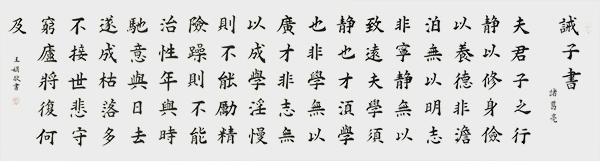 誡子書
諸葛亮
夫君子之行
靜以修身儉
以養德非澹
泊無以明志
非寧靜無以
致遠夫學須
靜也才須學
也非學無以
廣才非志無
以成學淫慢
則不能勵精
險躁則不能
治性年與時
馳意與日去
遂成枯落多
不接世悲守
窮廬將復何
及
王娟敬書